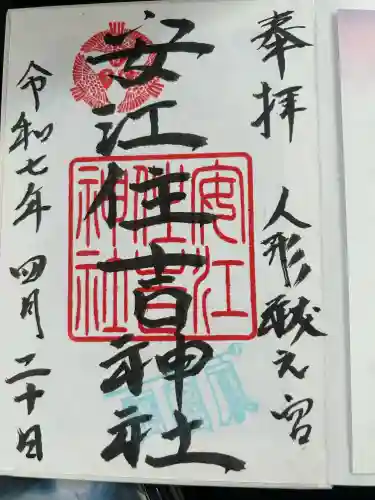 奉拝　人形祓元宮
安江住吉神社
令和七年　四月二十日
安江
住吉
神社